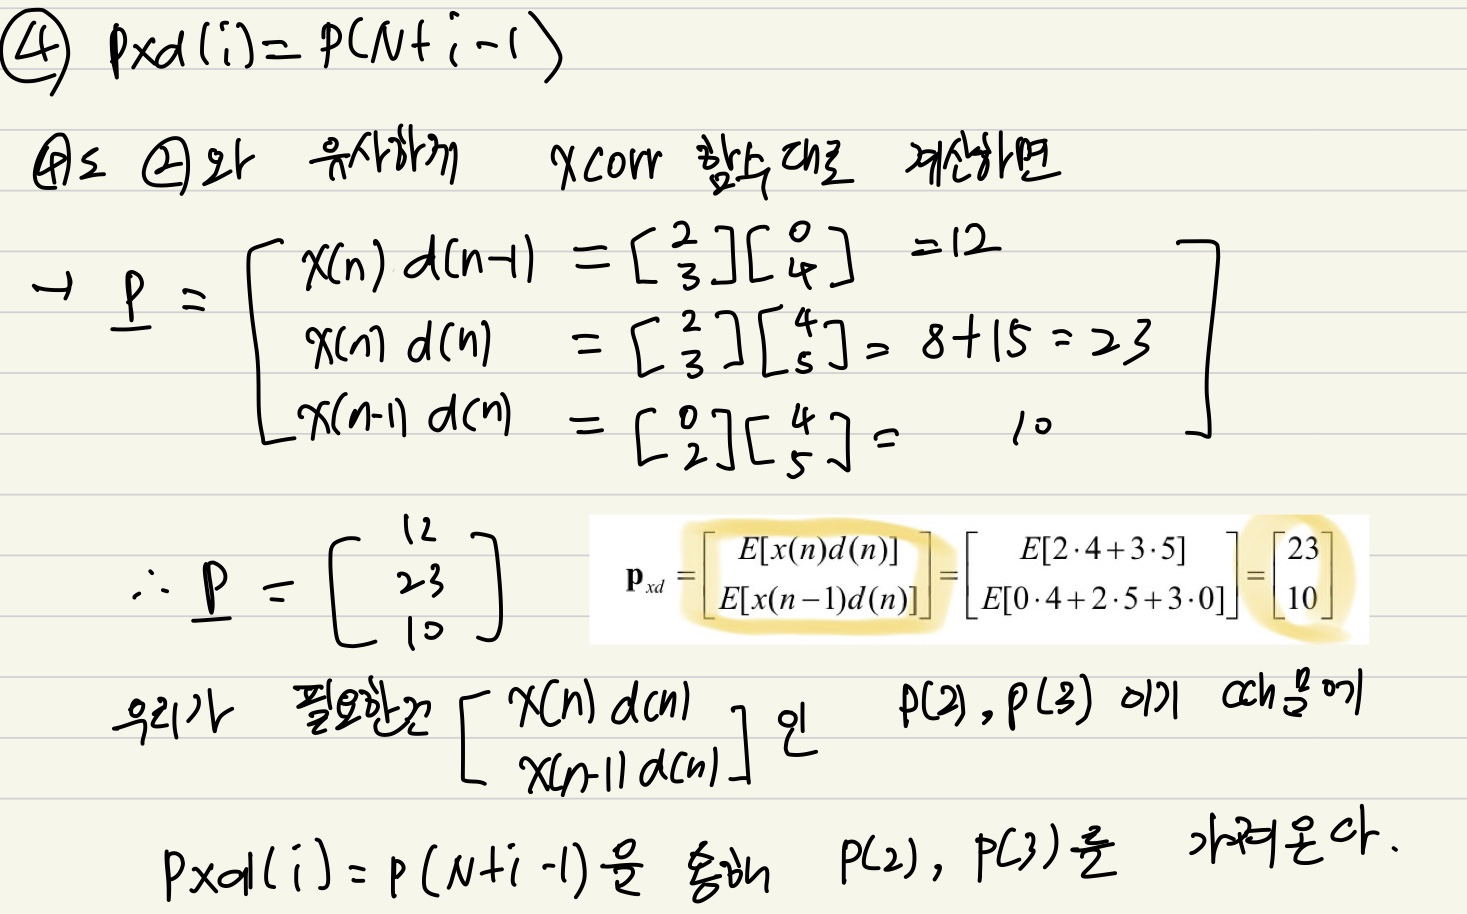 ④ Pxd(i)=P(N+i-1)
④도 ②와 유사하게 xcorr 함수대로 계산하면
→ P = [ x(n) d(n-1) = [2 3][0 4] =12
x(n) d(n) = [2 3][4 5] = 8+15=23
x(n-1) d(n) = [0 2][4 5] = 10 ]
∴ P = [12 23 10]
p_xd = [E[x(n)d(n)] E[x(n-1)d(n)]] = [E[2·4+3·5] E[0·4+2·5+3·0]] = [23 10]
우리가 필요한건 [x(n) d(n) x(n-1) d(n)] 인 P(2), P(3) 이기 때문에
Pxd(i)=P(N+i-1)을 통해 P(2), P(3)를 가져온다.